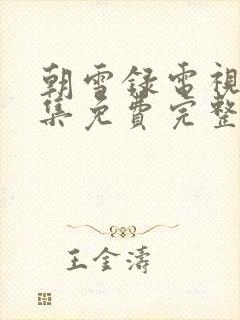 朝雪録電視
集免費完整
王金濤